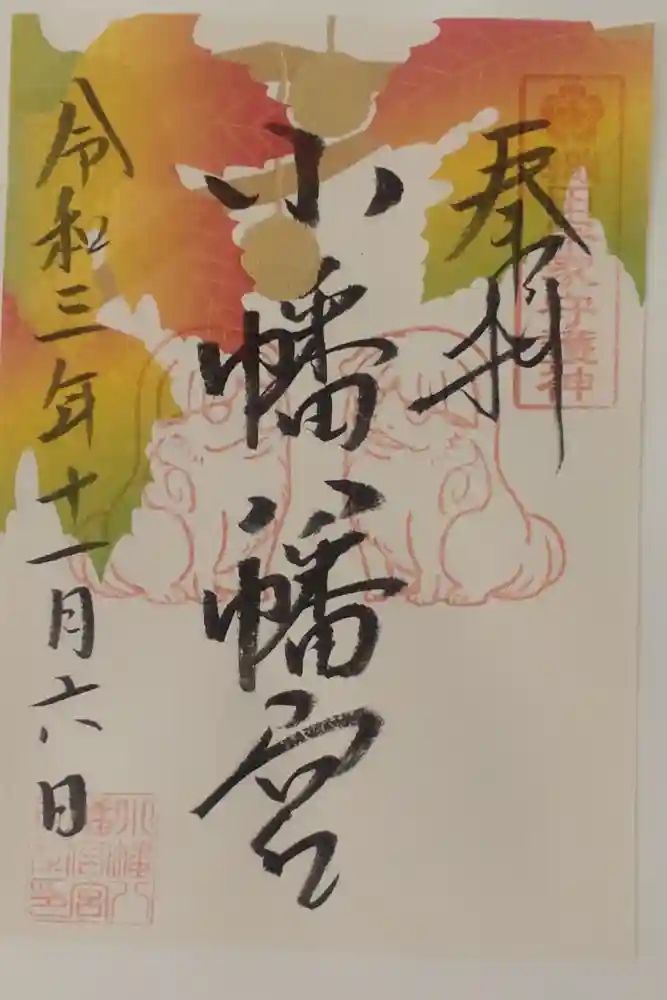 奉拝
家守護神
小幡八幡宮
令和三年十一月六日